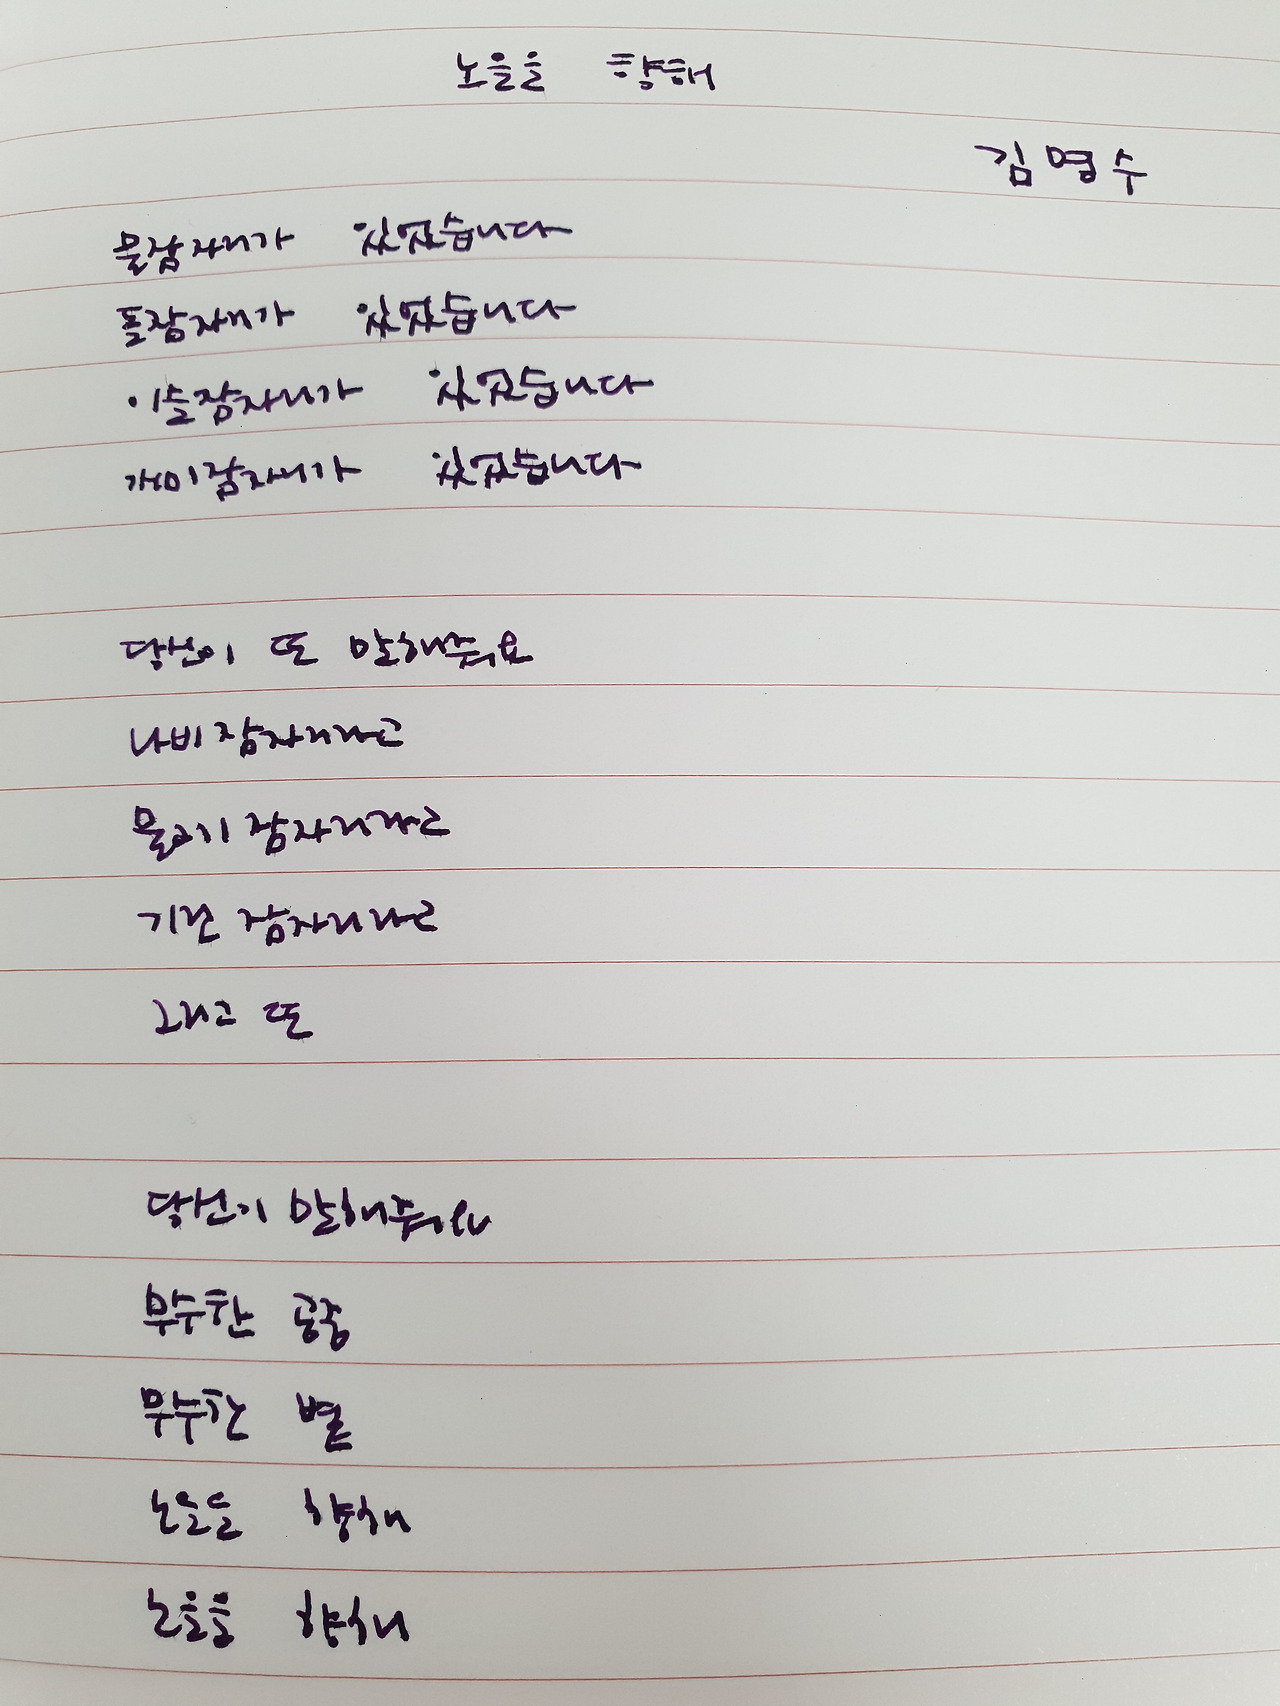 노을을 향해
김명수
물잠자리가 있었습니다
풀잠자리가 있었습니다
이슬잠자리가 있었습니다
개미잠자리가 있었습니다
당신이 또 말해줘요
나비 잠자리라고
물고기 잠자리라고
기린 잠자리라고
그리고 또
당신이 말해줘요
무수한 공중
무수한 별
노을을 향해
노을을 향해